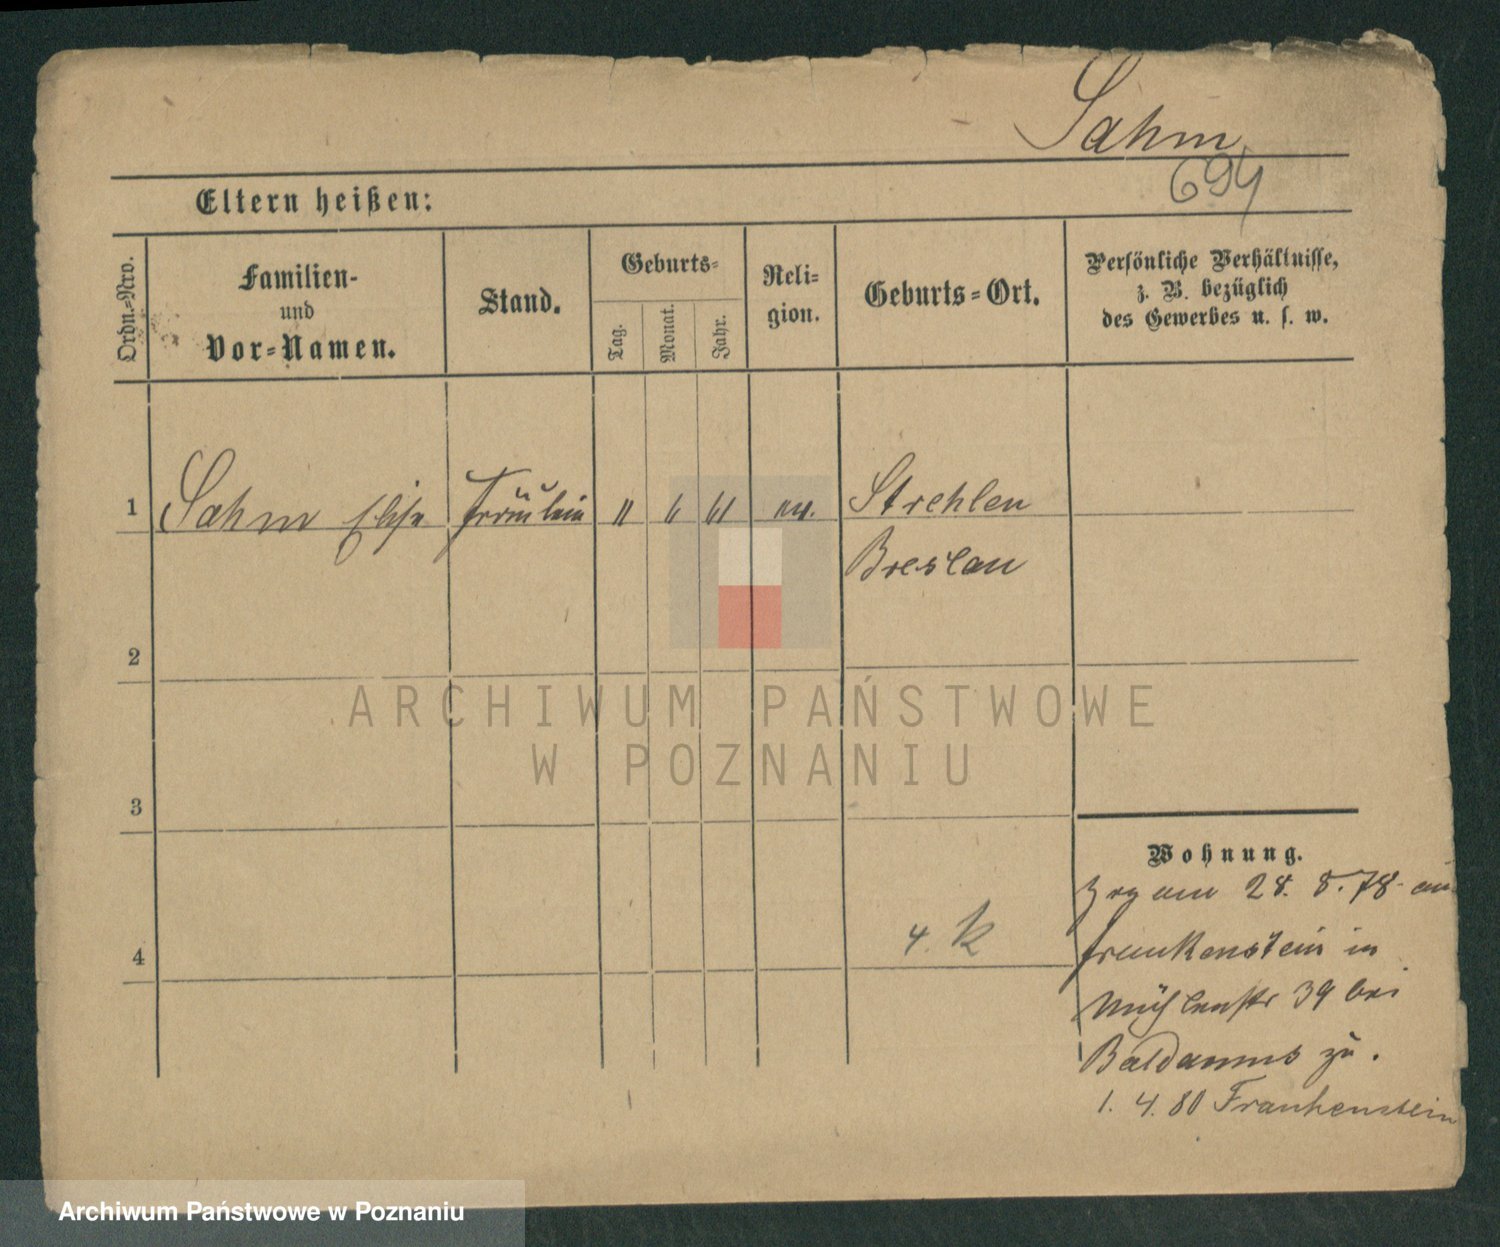 Sahm
694
Eltern heißen:
Ordn.-Nro.
Familien-
und
Vor-Namen.
Stand.
Geburts-
Tag.
Monat.
Jahr.
Reli-
gion.
Geburts-Ort.
Persönliche Verhältnisse,
z. B. bezüglich
des Gewerbes u. s. w.
1 Sahm Elise Fräulein " " " ev. Strehlen
Breslau
2
3
4
4. K
Wohnung.
Zog am 28. 8. 78 aus
Frankenstein in
Mühlenstr 39 bei
Baldamus zu.
1. 4. 80 Frankenstein
ARCHIWUM PAŃSTWOWE
W POZNANIU
Archiwum Państwowe w Poznaniu